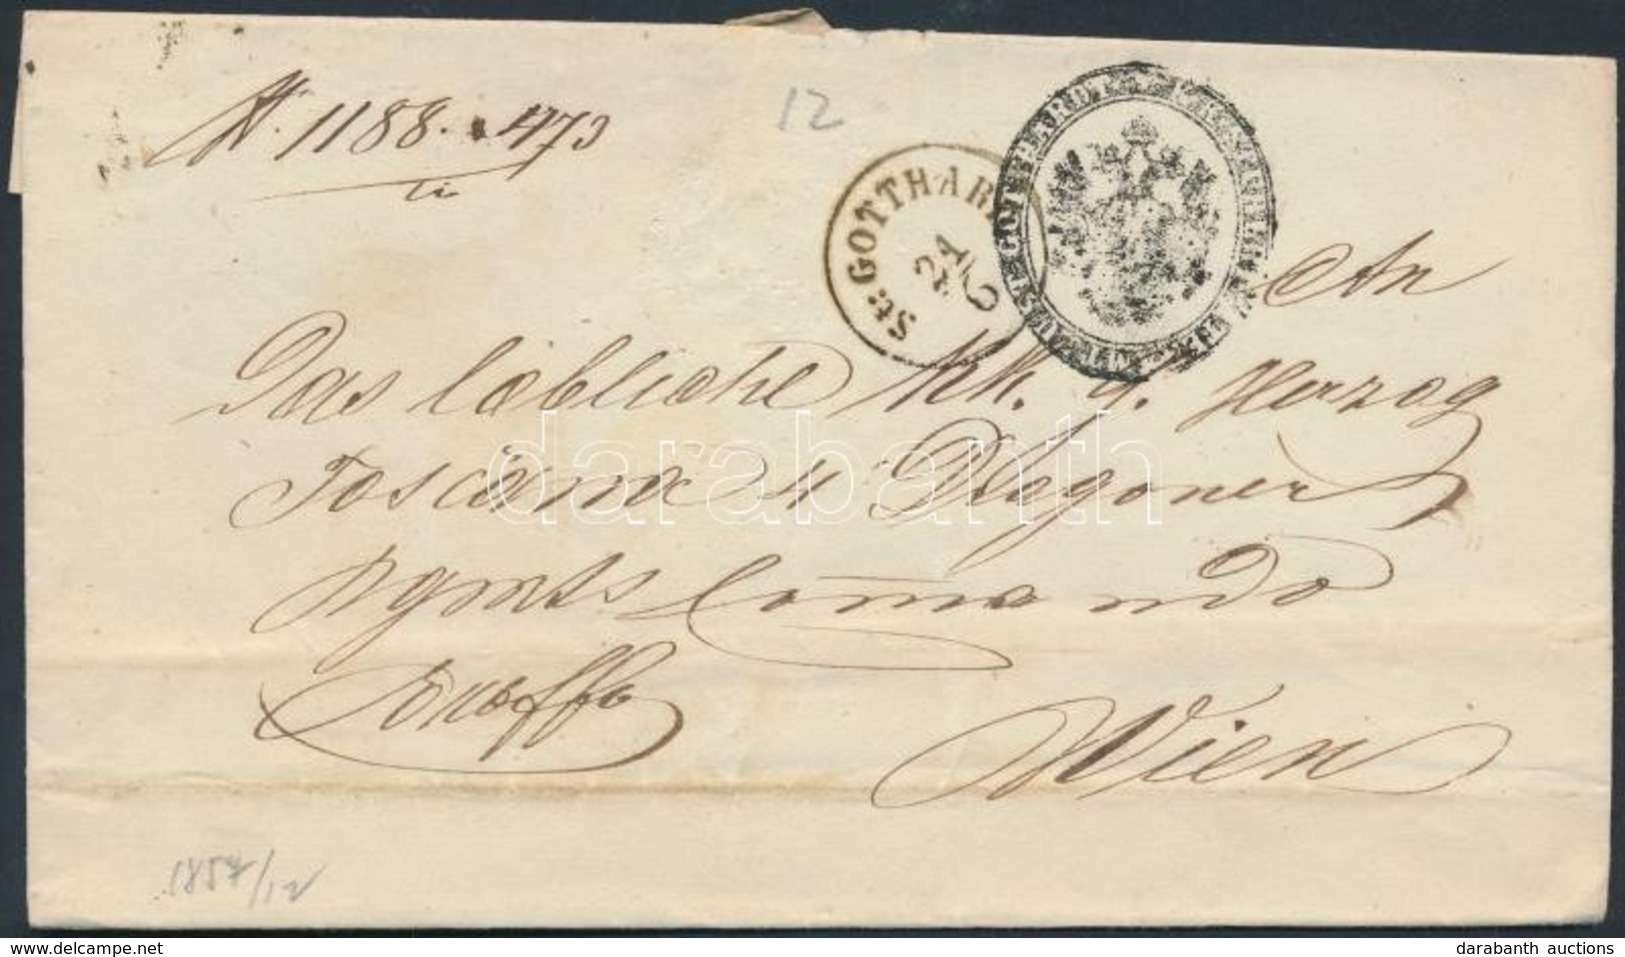 N. 1188. 473
12
St: GOTTHARD
21/6
ST. GOTTHARDT
An
Das löbliche kk. g. Herzog
Toscana 4 Dragoner
Rgmts Commando
Wien
1857/12
darabanth
www.delcampe.net
darabanth auctions